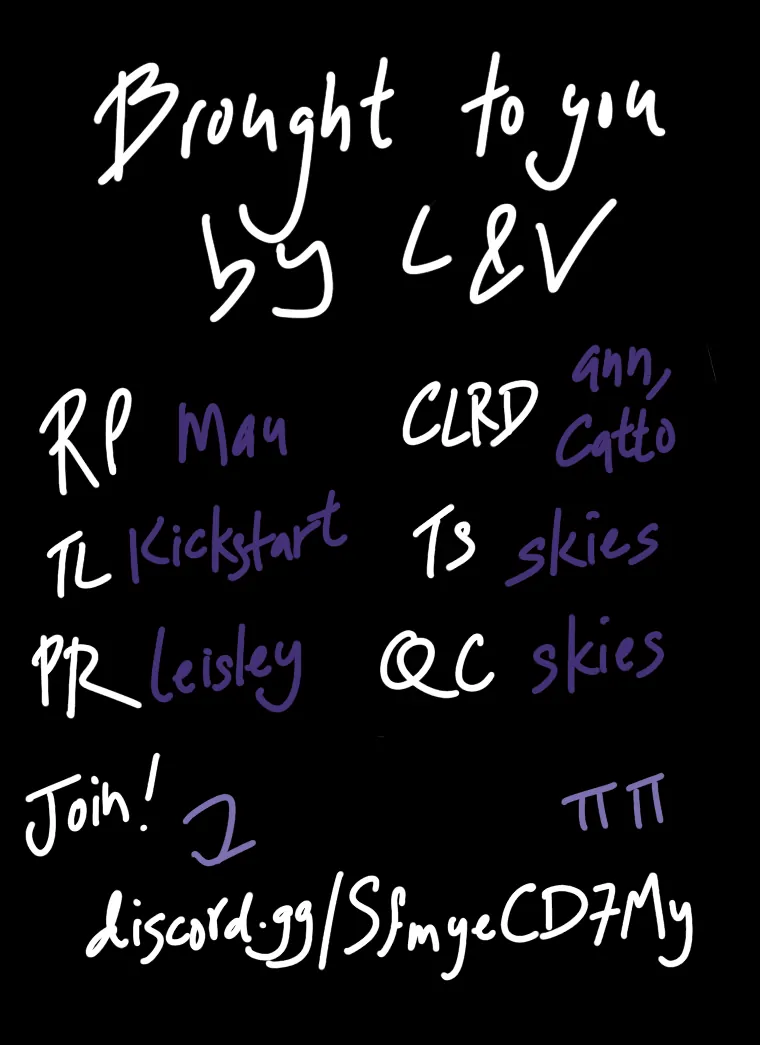 Brought to you
by L & V
RP Mau
CLRD ann,
Catto
TL Kickstart
TS skies
PR leisley
QC skies
Join!
discord.gg/SfmyeCD7My